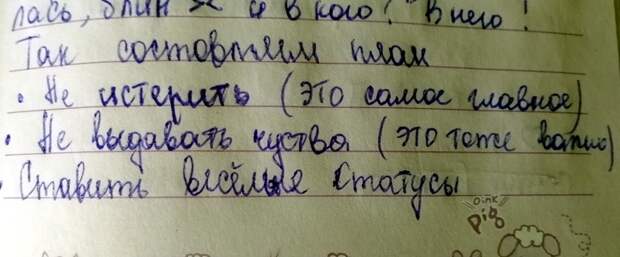 лась, блин а в кого? В него!
Так состовляем план
• Не истерить (это самое главное)
• Не выдавать чуства (это тоже важно)
• Ставить весёлые статусы
Oink
Pig